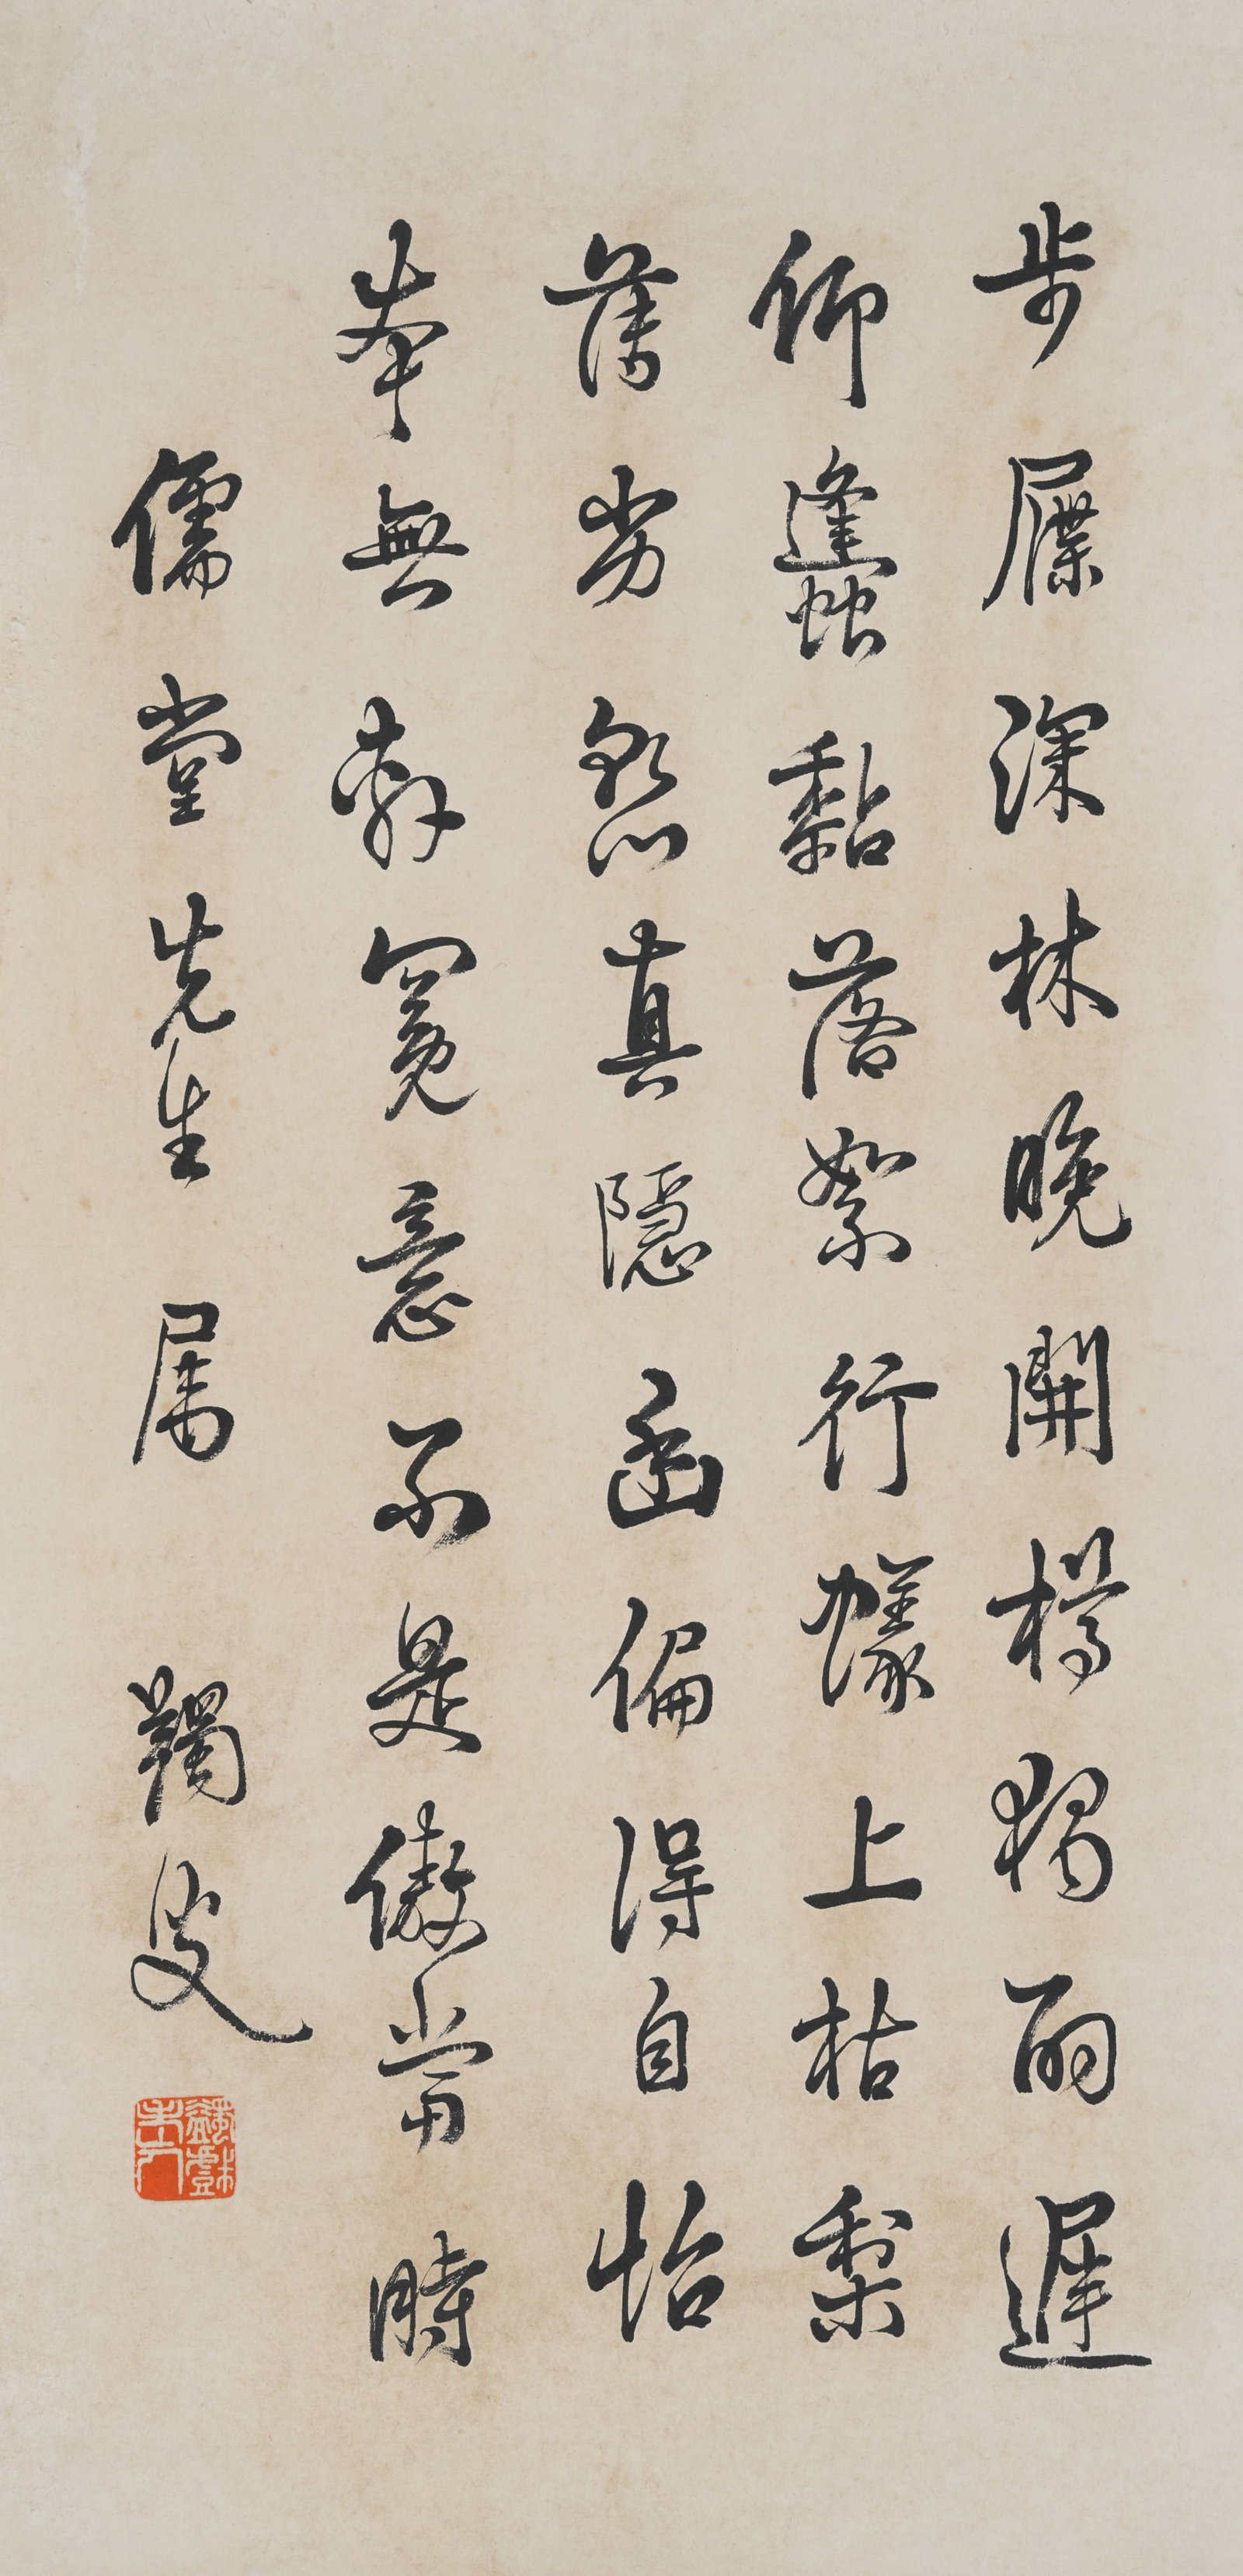 步屧深林晚開樽獨酌遲
仰蠭黏落絮行蟻上枯梨
薄劣慙真隱幽偏得自怡
本無軒冕意不是傲當時
儒堂先生 属 蠲叟
蠲戲老人